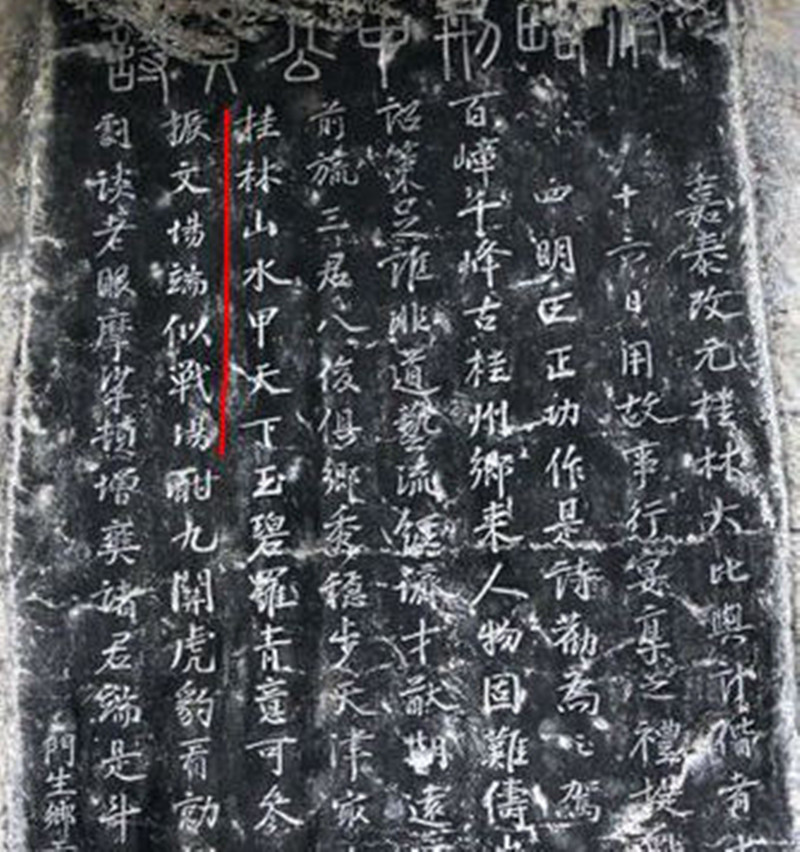 嘉泰改元桂林大比與計偕者
十六日用故事行宴享之禮提
四明王正功作是詩勸為之駕
百嶂千峰古桂州鄉來人物固難儔
詔策足誰非道藝流經濟才猷期遠
前旒三君八俊俱鄉秀穩步天津最
桂林山水甲天下玉碧羅青意可參
振文場端似戰場酣九關虎豹看勍
劇談老眼摩挲頓增爽諸君端是斗
門生鄉